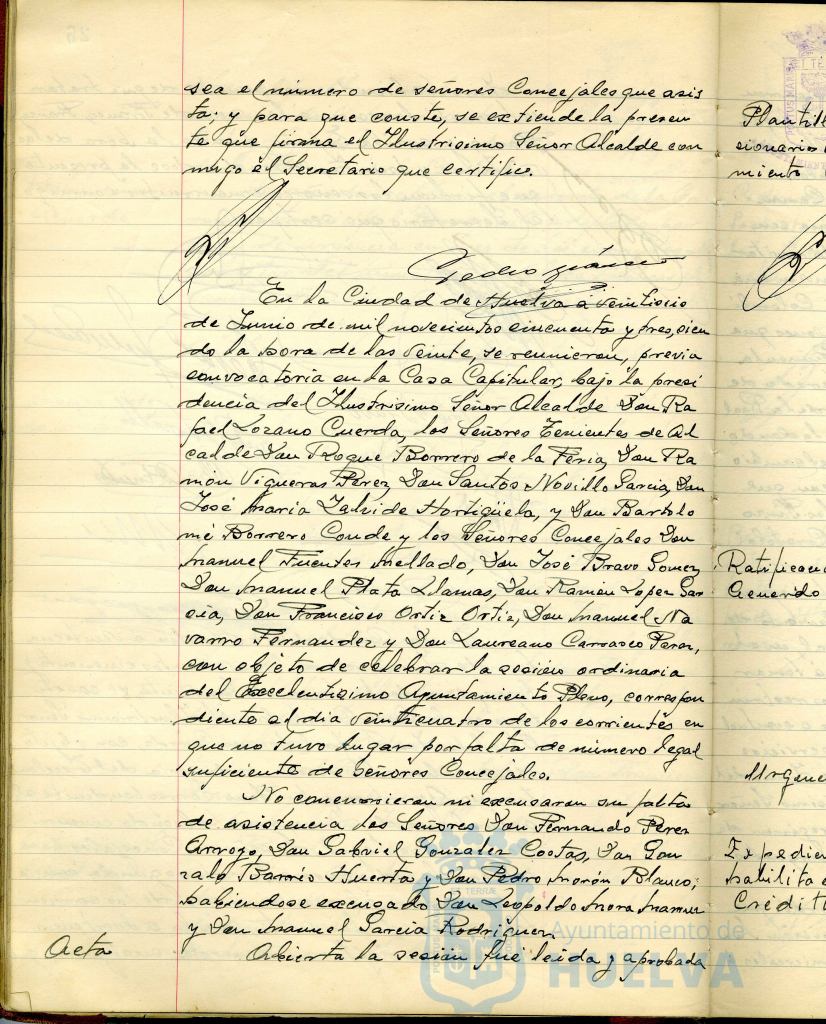 sea el número de señores Concejales que asis
ta; y para que conste, se extiende la presen
te que firma el Ilustrisimo Señor Alcalde con
migo el Secretario que certifico.
En la Ciudad de Huelva a veintiseis
de Junio de mil novecientos cincuenta y tres, sien
do la hora de las veinte, se reunieron, previa
convocatoria en la Casa Capitular, bajo la presi
dencia del Ilustrisimo Señor Alcalde Don Ra
fael Lozano Cuerda, los Señores Tenientes de Al
calde Don Roque Borrero de la Feria, Don Ra
món Vigueras Perez, Don Santos Novillo Garcia, Don
José Maria Zalvide Hortigüela, y Don Bartolo
mé Borrero Conde y los Señores Concejales Don
Manuel Fuentes Mellado, Don José Bravo Gomez,
Don Manuel Plata Llamas, Don Ramón Lopez Gar
cia, Don Francisco Ortiz Ortiz, Don Manuel Na
varro Fernandez y Don Laureano Carrasco Perez,
con objeto de celebrar la sesión ordinaria
del Excelentisimo Ayuntamiento Pleno, correspon
diente al dia veinticuatro de los corrientes en
que no tuvo lugar por falta de número legal
suficiente de señores Concejales.
No concurrieron ni excusaron su falta
de asistencia los Señores Don Fernando Perez
Arroyo, Don Gabriel Gonzalez Costas, Don Gon
zalo Barrés Huerta y Don Pedro Morón Blanco;
habiendose excusado Don Leopoldo Mora
y Don Manuel Garcia Rodriguez.
Acta
Abierta la sesión fué leida y aprobada
Plantill
cionarios
miento
Ratificaci
Acuerdo
Urgenc
Expedien
habilita
Crédit
Ayuntamiento de
HUELVA